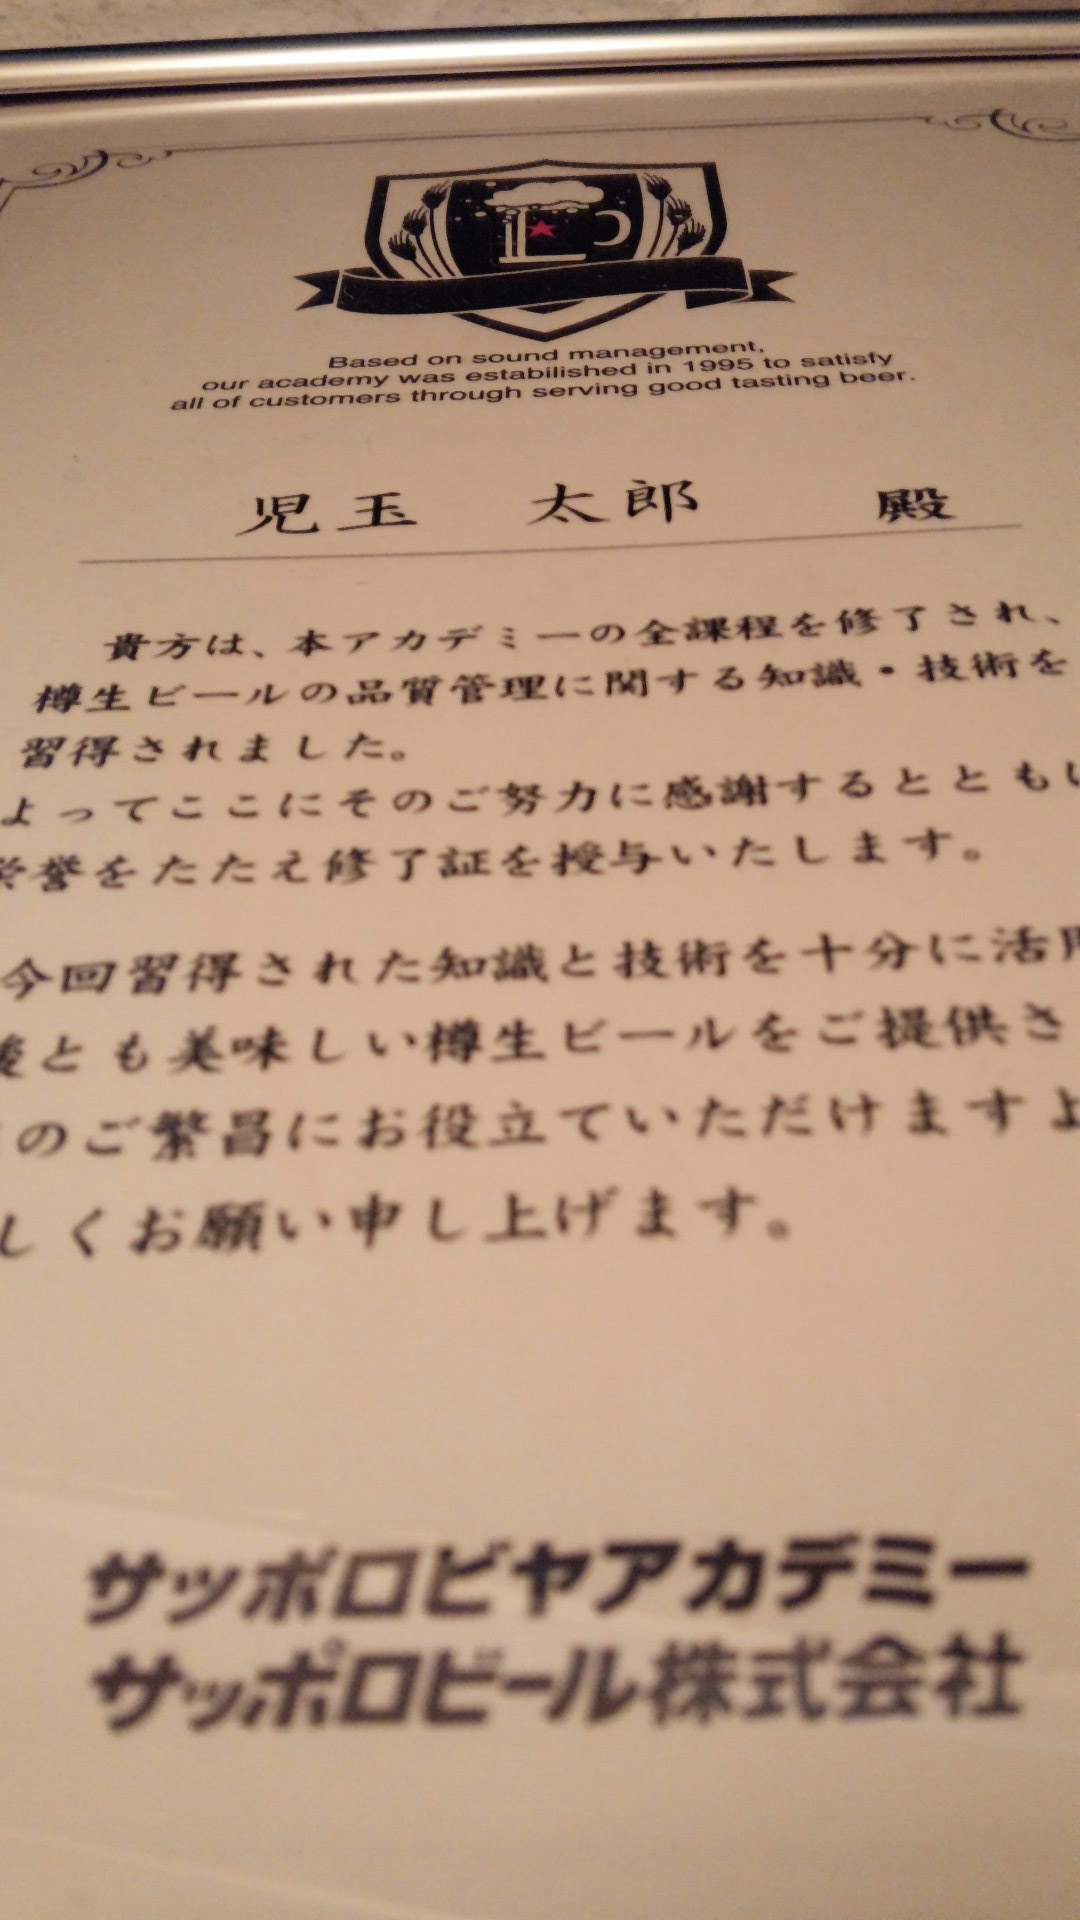 Based on sound management,
our academy was estabilished in 1995 to satisfy
all of customers through serving good tasting beer.
児玉 太郎 殿
貴方は、本アカデミーの全課程を修了され、
樽生ビールの品質管理に関する知識・技術を
習得されました。
よってここにそのご努力に感謝するとともに
栄誉をたたえ修了証を授与いたします。
今回習得された知識と技術を十分に活用
後とも美味しい樽生ビールをご提供さ
のご繁昌にお役立ていただけますよ
しくお願い申し上げます。
サッポロビヤアカデミー
サッポロビール株式会社